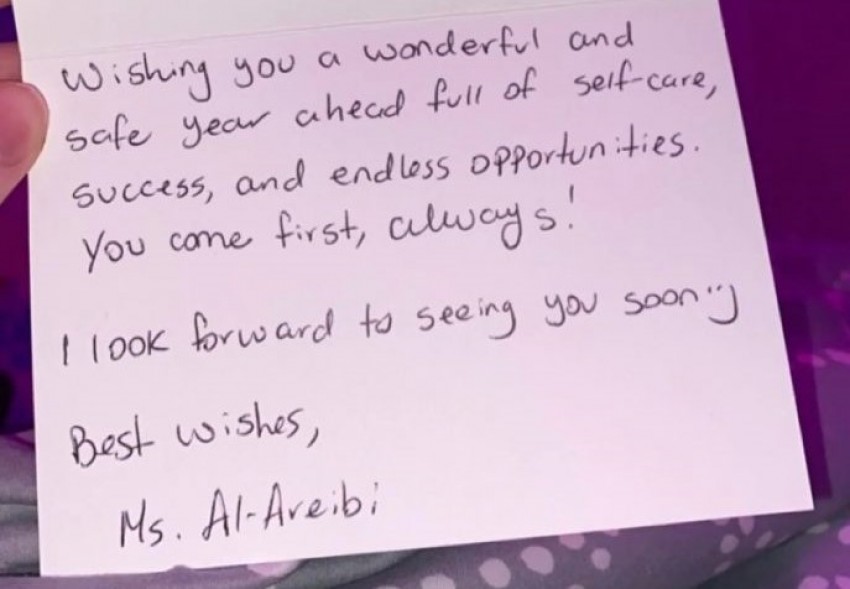 Wishing you a wonderful and
safe year ahead full of self-care,
success, and endless opportunities.
You come first, always!
I look forward to seeing you soon :)
Best wishes,
Ms. Al-Areibi